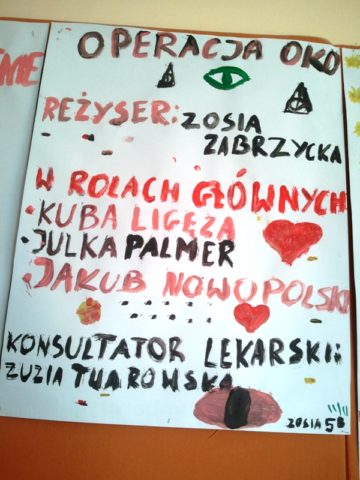 OPERACJA OKO
REŻYSER: ZOSIA
ZABRZYCKA
W ROLACH GŁÓWNYCH
• KUBA LIGĘZA
• JULKA PALMER
• JAKUB NOWOPOLSKI
KONSULTATOR LEKARSKI:
ZUZIA TWAROWSKA
ZOSIA 5B